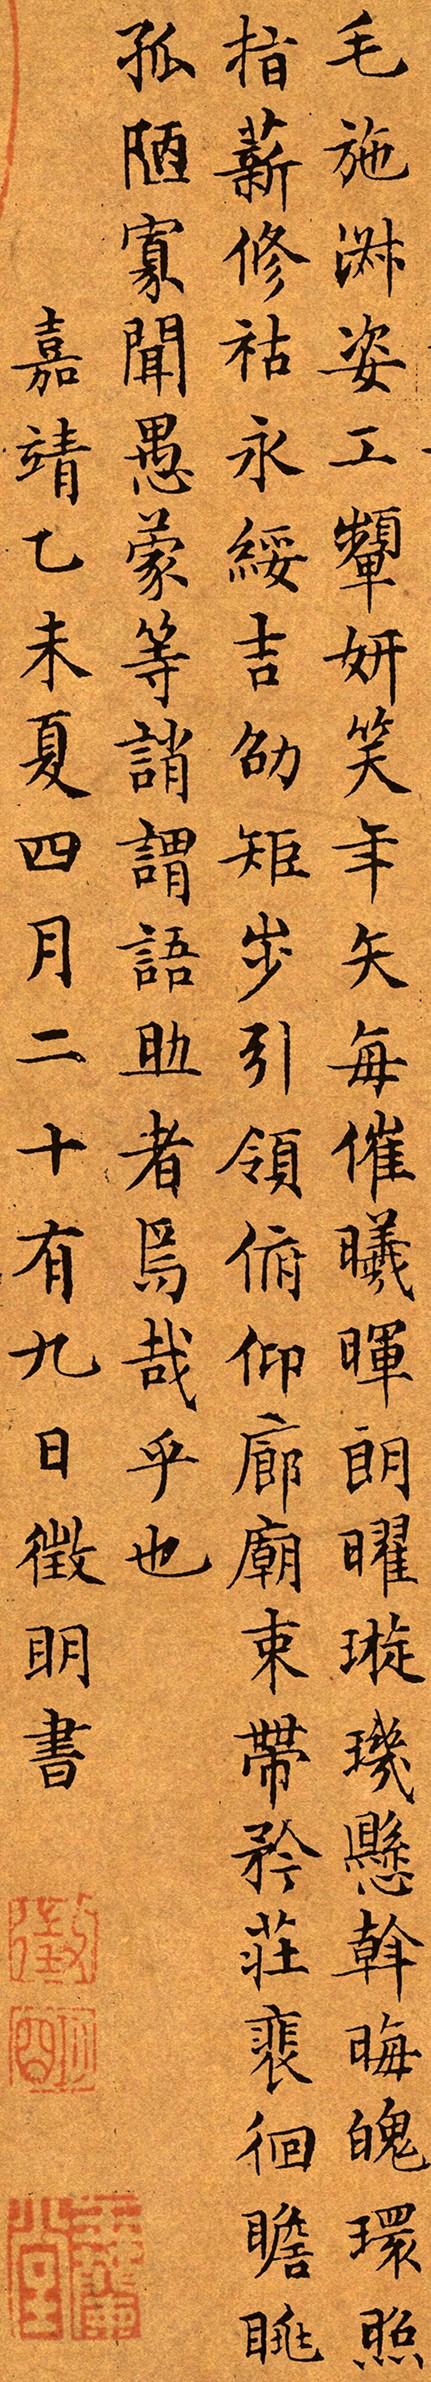 毛施淑姿工顰妍笑年矢每催曦暉朗曜璇璣懸斡晦魄環照
指薪修祜永綏吉劭矩步引領俯仰廊廟束帶矜莊裴徊瞻眺
孤陋寡聞愚蒙等誚謂語助者焉哉乎也
嘉靖乙未夏四月二十有九日徵明書
徵
明